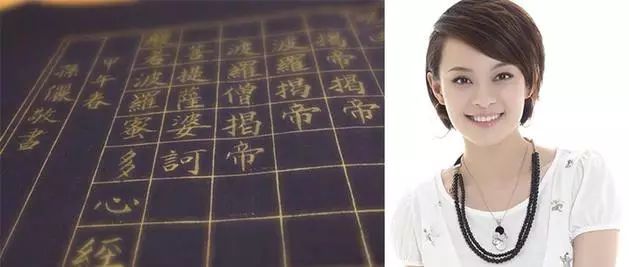 揭帝揭帝
波羅揭帝
波羅僧揭帝
菩提薩婆訶
般若波羅蜜多心經
甲午春
孫儷敬書